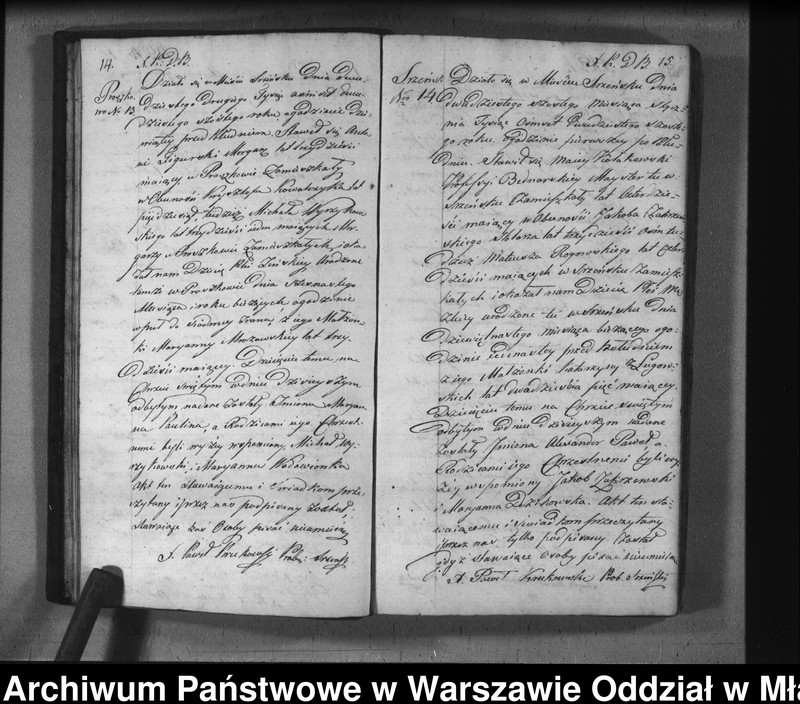 14.
Proszko-
wo No 13.
Działo się w Mieście Dnia dwu-
dziestego drugiego Tysiąc ośmset dwu-
dziestego szóstego roku o godzinie dzie-
wiątey przed Południem. Stawił się Anto-
ni Figurski Morgarz lat trzydzieści
maiący w Proszkowie Zamieszkały
w Obecności Krysztofa Kowalczyka lat
pięćdziesiąt tudzież Michała Wyrzykow-
skiego lat trzydzieści siedm maiących Mor-
garzy w Proszkowie Zamieszkałych, i oka-
zał nam Dziecię Płci Żeńskiey Urodzone
w Proszkowie Dnia
Miesiąca i roku bieżących o godzinie
wpuł do siódmey zrana, z iego Małżon-
ki Maryanny Mrozowskiey lat trzy-
dzieści maiącey. Dziecięciu temu na
Chrzcie Świętym w dniu dzisieyszym
odbytym nadane zostały Imiona Maryan-
na Paulina, a Rodzicami iego Chrzest-
nemi byli wyżey wspomniony Michał Wy-
rzykowski i Maryanna
Akt ten Stawaiącemu i Świadkom prze-
czytany i przez nas podpisany został
Stawaiące zaś Osoby pisać nieumieią
X. Paweł Krukowski Prob:
15.
No 14
Działo się w Mieście Szreńsku Dnia
dwudziestego szóstego miesiąca Stycz-
nia Tysiąc Ośmset Dwudziestego szóste-
go roku, o godzinie pierwszey po Połu-
dniu. Stawił się Maciey
Professyi Bednarskiey Mayster tu w
Szreńsku Zamieszkały lat Czterdzie-
ści maiący w Obecności Jakóba Zakrzew-
skiego Stolarza lat trzydzieści ośm tu-
dzież Mateusza Rogowskiego lat Czter-
dzieści maiących w Szreńsku Zamiesz-
kałych i okazał nam Dziecię Płci Mę-
zkiey urodzone tu w Szreńsku dnia
dziewiętnastego miesiąca bieżącego o go-
dzinie iedenastey przed Południem
z iego Małżonki Katarzyny z Ługow-
skich lat dwadzieścia pięć maiącey.
Dziecięciu temu na Chrzcie świętym
odbytym w dniu dzisieyszym nadane
zostały Imiona Alexander Paweł a
Rodzicami iego Chrzestnemi byli wy-
żey wspomniony Jakób Zakrzewski
i Maryanna Akt ten sta-
waiącemu i Świadkom przeczytany
i przez nas tylko podpisany został
gdyż Stawaiące osoby pisać nieumieią
X. Paweł Krukowski Prob.
Archiwum Państwowe w Warszawie Oddział w Mła